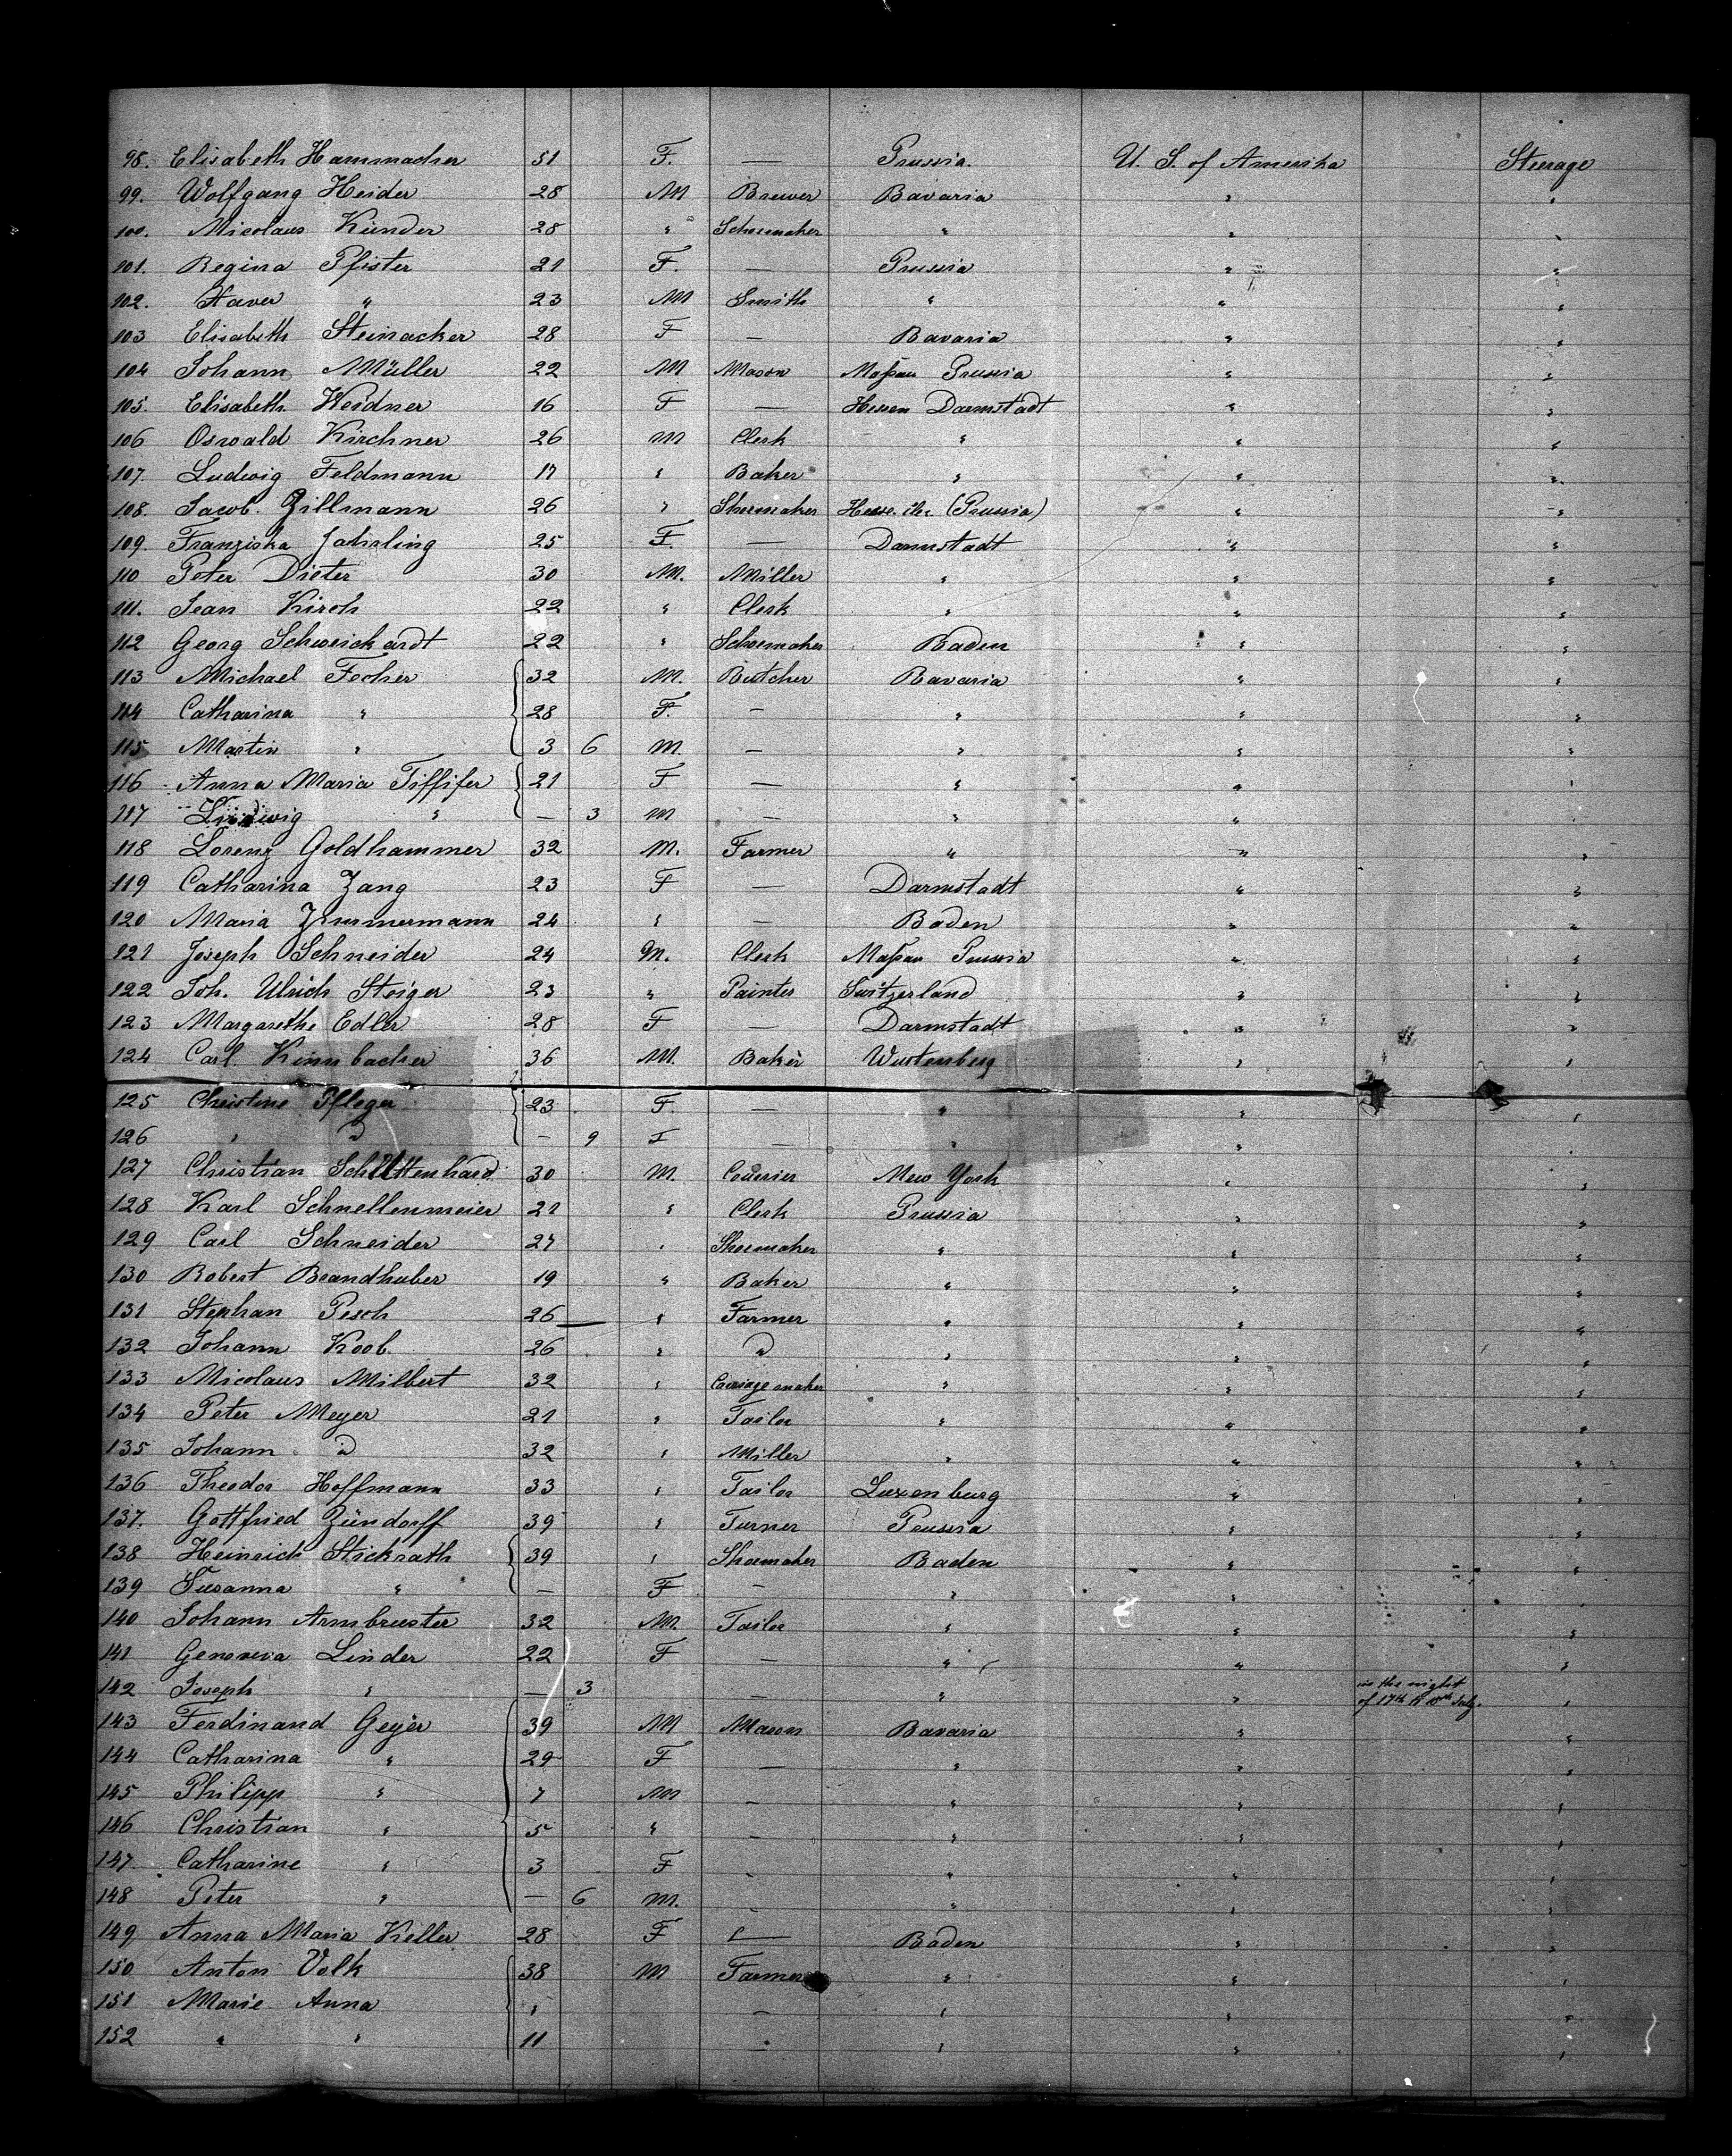 98. Elisabeth Hammacher 51 F. — Prussia. U. S. of Amerika Steerage
99. Wolfgang Heider 28 M Brewer Bavaria " "
100. Nicolaus Künder 28 " Schoemaker " " "
101. Regina Pfister 21 F. — Prussia " "
102. Xaver " 23 M Smith " " "
103 Elisabeth Steinacker 28 F — Bavaria " "
104 Johann Müller 22 M Mason Naßau Prussia " "
105. Elisabeth Weidner 16 F — Hessen Darmstadt " "
106 Oswald Kirchner 26 M Clerk " " "
107. Ludwig Feldmann 17 " Baker " " "
108. Jacob. Zillmann 26 " Shoemaker Hesse (Prussia) " "
109. Franziska Jährling 25 F. — Darmstadt " "
110 Peter Dieter 30 M. Miller " " "
111. Jean Kirch 22 " Clerk " " "
112 Georg Schweickardt 22 " Schoemaker Baden " "
113 Michael Fecher 32 M. Butcher Bavaria " "
114 Catharina " 28 F. — " " "
115 Martin " 3 6 M. — " " "
116 Anna Maria 21 F — " " "
117 Ludwig " — 3 M — " " "
118 Lorenz Goldhammer 32 M. Farmer " " "
119 Catharina Zang 23 F — Darmstadt " "
120 Maria Zimmermann 24 " — Baden " "
121 Joseph Schneider 24 M. Clerk Naßau Prussia " "
122 Joh. Ulrich Steiger 23 " Painter Switzerland " "
123 Margarethe Edler 28 F — Darmstadt " "
124 Carl Kimmbacher 36 M. Baker Wurtenberg " "
125 Christine Pfleger 23 F. — " " "
126 " d — 9 F — " " "
127 Christian Schüttenhard 30 M. Courier New York " "
128 Karl Schnellenmeier 21 " Clerk Prussia " "
129 Carl Schneider 27 " Shoemaker " " "
130 Robert Brandhuber 19 " Baker " " "
131 Stephan Pesch 26 — " Farmer " " "
132 Johann Koob 26 " d " " "
133 Nicolaus Milbert 32 " Carriage maker " " "
134 Peter Meyer 21 " Tailor " " "
135 Johann d 32 " Miller " " "
136 Theodor Hoffmann 33 " Tailor Luxenburg " "
137. Gottfried Zündorff 39 " Turner Prussia " "
138 Heinrich Stickrath 39 " Shoemaker Baden " "
139 Susanna " — F — " " "
140 Johann Armbruster 32 M. Tailor " " "
141 Genoveva Linder 22 F — " " "
142 Joseph " — 3 — " " in the night of 17th to 18th July. "
143 Ferdinand Geyer 39 M Mason Bavaria " "
144 Catharina " 29 F — " " "
145 Philipp " 7 M — " " "
146 Christian " 5 " — " " "
147 Catharine " 3 F - " " "
148 Peter " — 6 M. - " " "
149 Anna Maria Keller 28 F — Baden " "
150 Anton Volk 38 M Farmer " " "
151 Marie Anna " — " " "
152 " " 11 — " " "